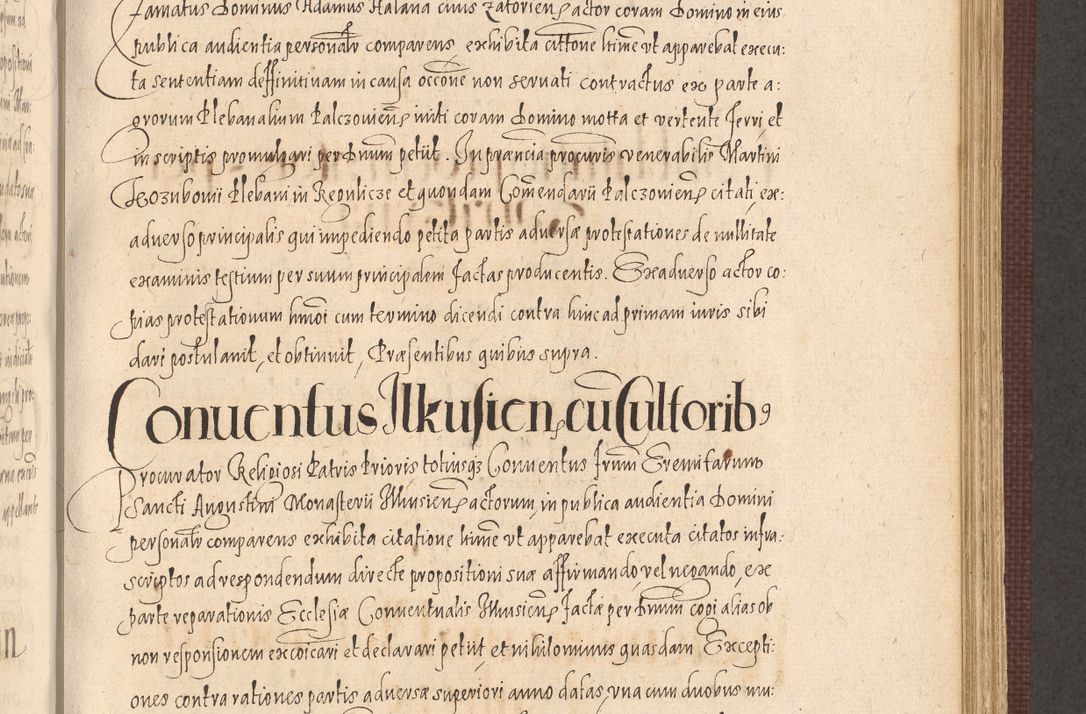 Famatus Dominus Adamus Halana ciuis Zatorien: actor coram Domino in eius
publica audientia personalr comparens exhibita cittone hinc vt apparebat execu:
ta sententiam deffinitiuam in causa occone non seruati contractus ex parte a:
grorum Plebanalium Palczouiens initi coram Domino motta et vertente ferri, et
in scriptis promulgari per Dnum petijt. In prancia procuris venerabilis Martini
Kozubouij Plebani in Regulicze et quondam Comendarij Palczouiens citati, ex:
aduerso principalis qui impediendo petita partis aduersæ protestationes de nullitate
examinis testium per suum principalem factas producentis. Exaduerso actor co:
pias protestationum hmoi cum termino dicendi contra hinc ad primam iuris sibi
dari postulauit, et obtinuit, Præsentibus quibus supra.
Conuentus Ilkusien, cu Cultorib9
Procurator Religiosi Patris Prioris totiusqz Conuentus frum Eremitarum
Sancti Augustini Monasterij Ilkusiens actorum, in publica audientia Domini
personalr comparens exhibita citatione hinc vt apparebat executa citatos infra:
scriptos ad respondendum directe propositioni suæ affirmando, vel negando, ex
parte reparationis Ecclesiæ Conuentualis Ilkusiens factæ per Dnum cogi alias ob
non responsionem excoicari et declarari petijt, et nihilominus quasdam Excepti:
ones contra rationes partis aduersæ superiori anno datas, vna cum duobus mu: